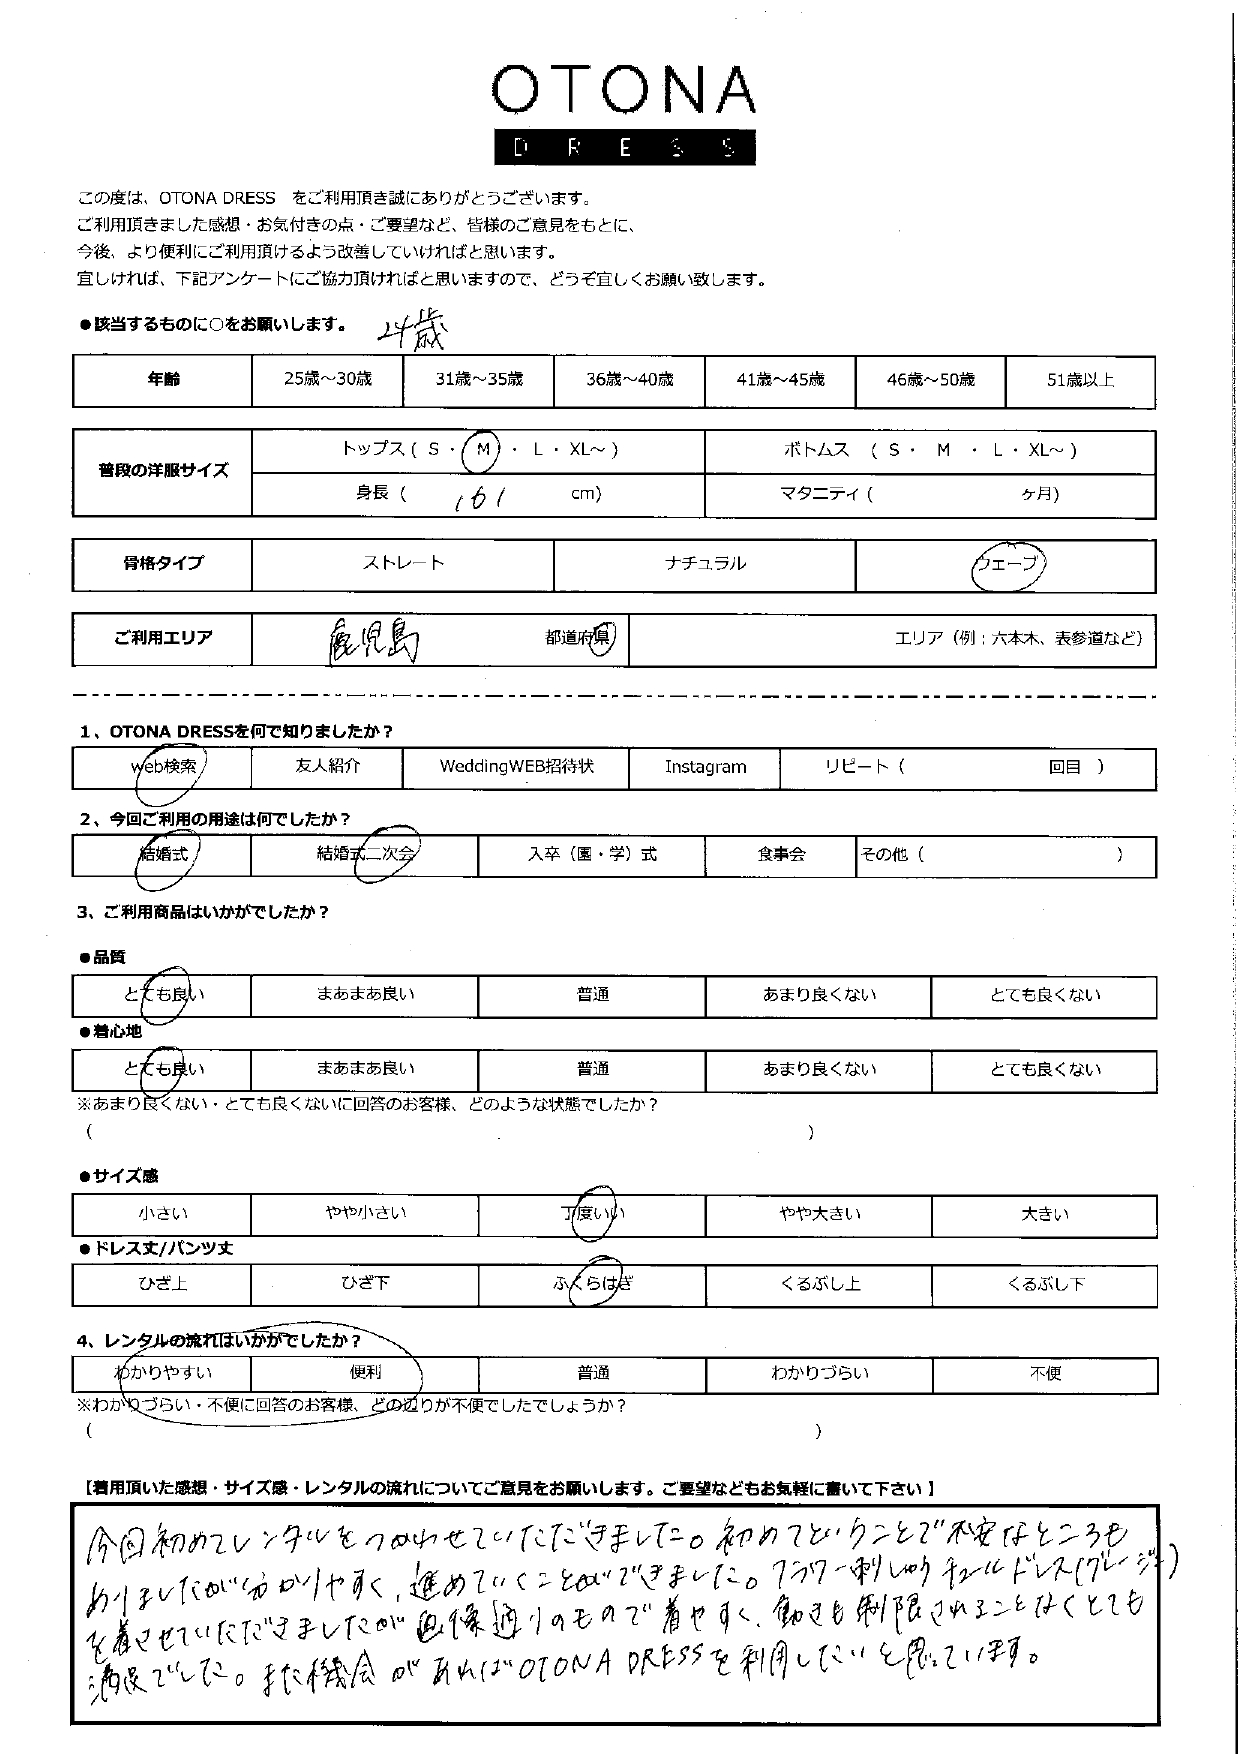 OTONA
DRESS
この度は、OTONA DRESS　をご利用頂き誠にありがとうございます。
ご利用頂きました感想・お気付きの点・ご要望など、皆様のご意見をもとに、
今後、より便利にご利用頂けるよう改善していければと思います。
宜しければ、下記アンケートにご協力頂ければと思いますので、どうぞ宜しくお願い致します。
●該当するものに○をお願いします。 24歳
年齢 25歳～30歳 31歳～35歳 36歳～40歳 41歳～45歳 46歳～50歳 51歳以上
普段の洋服サイズ トップス ( S ・ M ・ L ・ XL～ ) ボトムス ( S ・ M ・ L ・ XL～ )
身長 ( 161 cm) マタニティ ( ヶ月)
骨格タイプ ストレート ナチュラル ウェーブ
ご利用エリア 鹿児島 都道府県 エリア（例：六本木、表参道など）
1、OTONA DRESSを何で知りましたか？
web検索 友人紹介 WeddingWEB招待状 Instagram リピート（ 回目 ）
2、今回ご利用の用途は何でしたか？
結婚式 結婚式二次会 入卒（園・学）式 食事会 その他（ ）
3、ご利用商品はいかがでしたか？
●品質
とても良い まあまあ良い 普通 あまり良くない とても良くない
●着心地
とても良い まあまあ良い 普通 あまり良くない とても良くない
※あまり良くない・とても良くないに回答のお客様、どのような状態でしたか？
( )
●サイズ感
小さい やや小さい 丁度いい やや大きい 大きい
●ドレス丈/パンツ丈
ひざ上 ひざ下 ふくらはぎ くるぶし上 くるぶし下
4、レンタルの流れはいかがでしたか？
わかりやすい 便利 普通 わかりづらい 不便
※わかりづらい・不便に回答のお客様、どの辺りが不便でしたでしょうか？
( )
【着用頂いた感想・サイズ感・レンタルの流れについてご意見をお願いします。ご要望などもお気軽に書いて下さい】
今回初めてレンタルをつかわせていただきました。初めてということで不安なところも
ありましたが分かりやすく、進めていくことができました。フラワー刺しゅうチュールドレス(グレージュ)
を着させていただきましたが画像通りのもので着やすく、動きも制限されることなくとても
満足でした。また機会があればOTONA DRESSを利用したいと思っています。